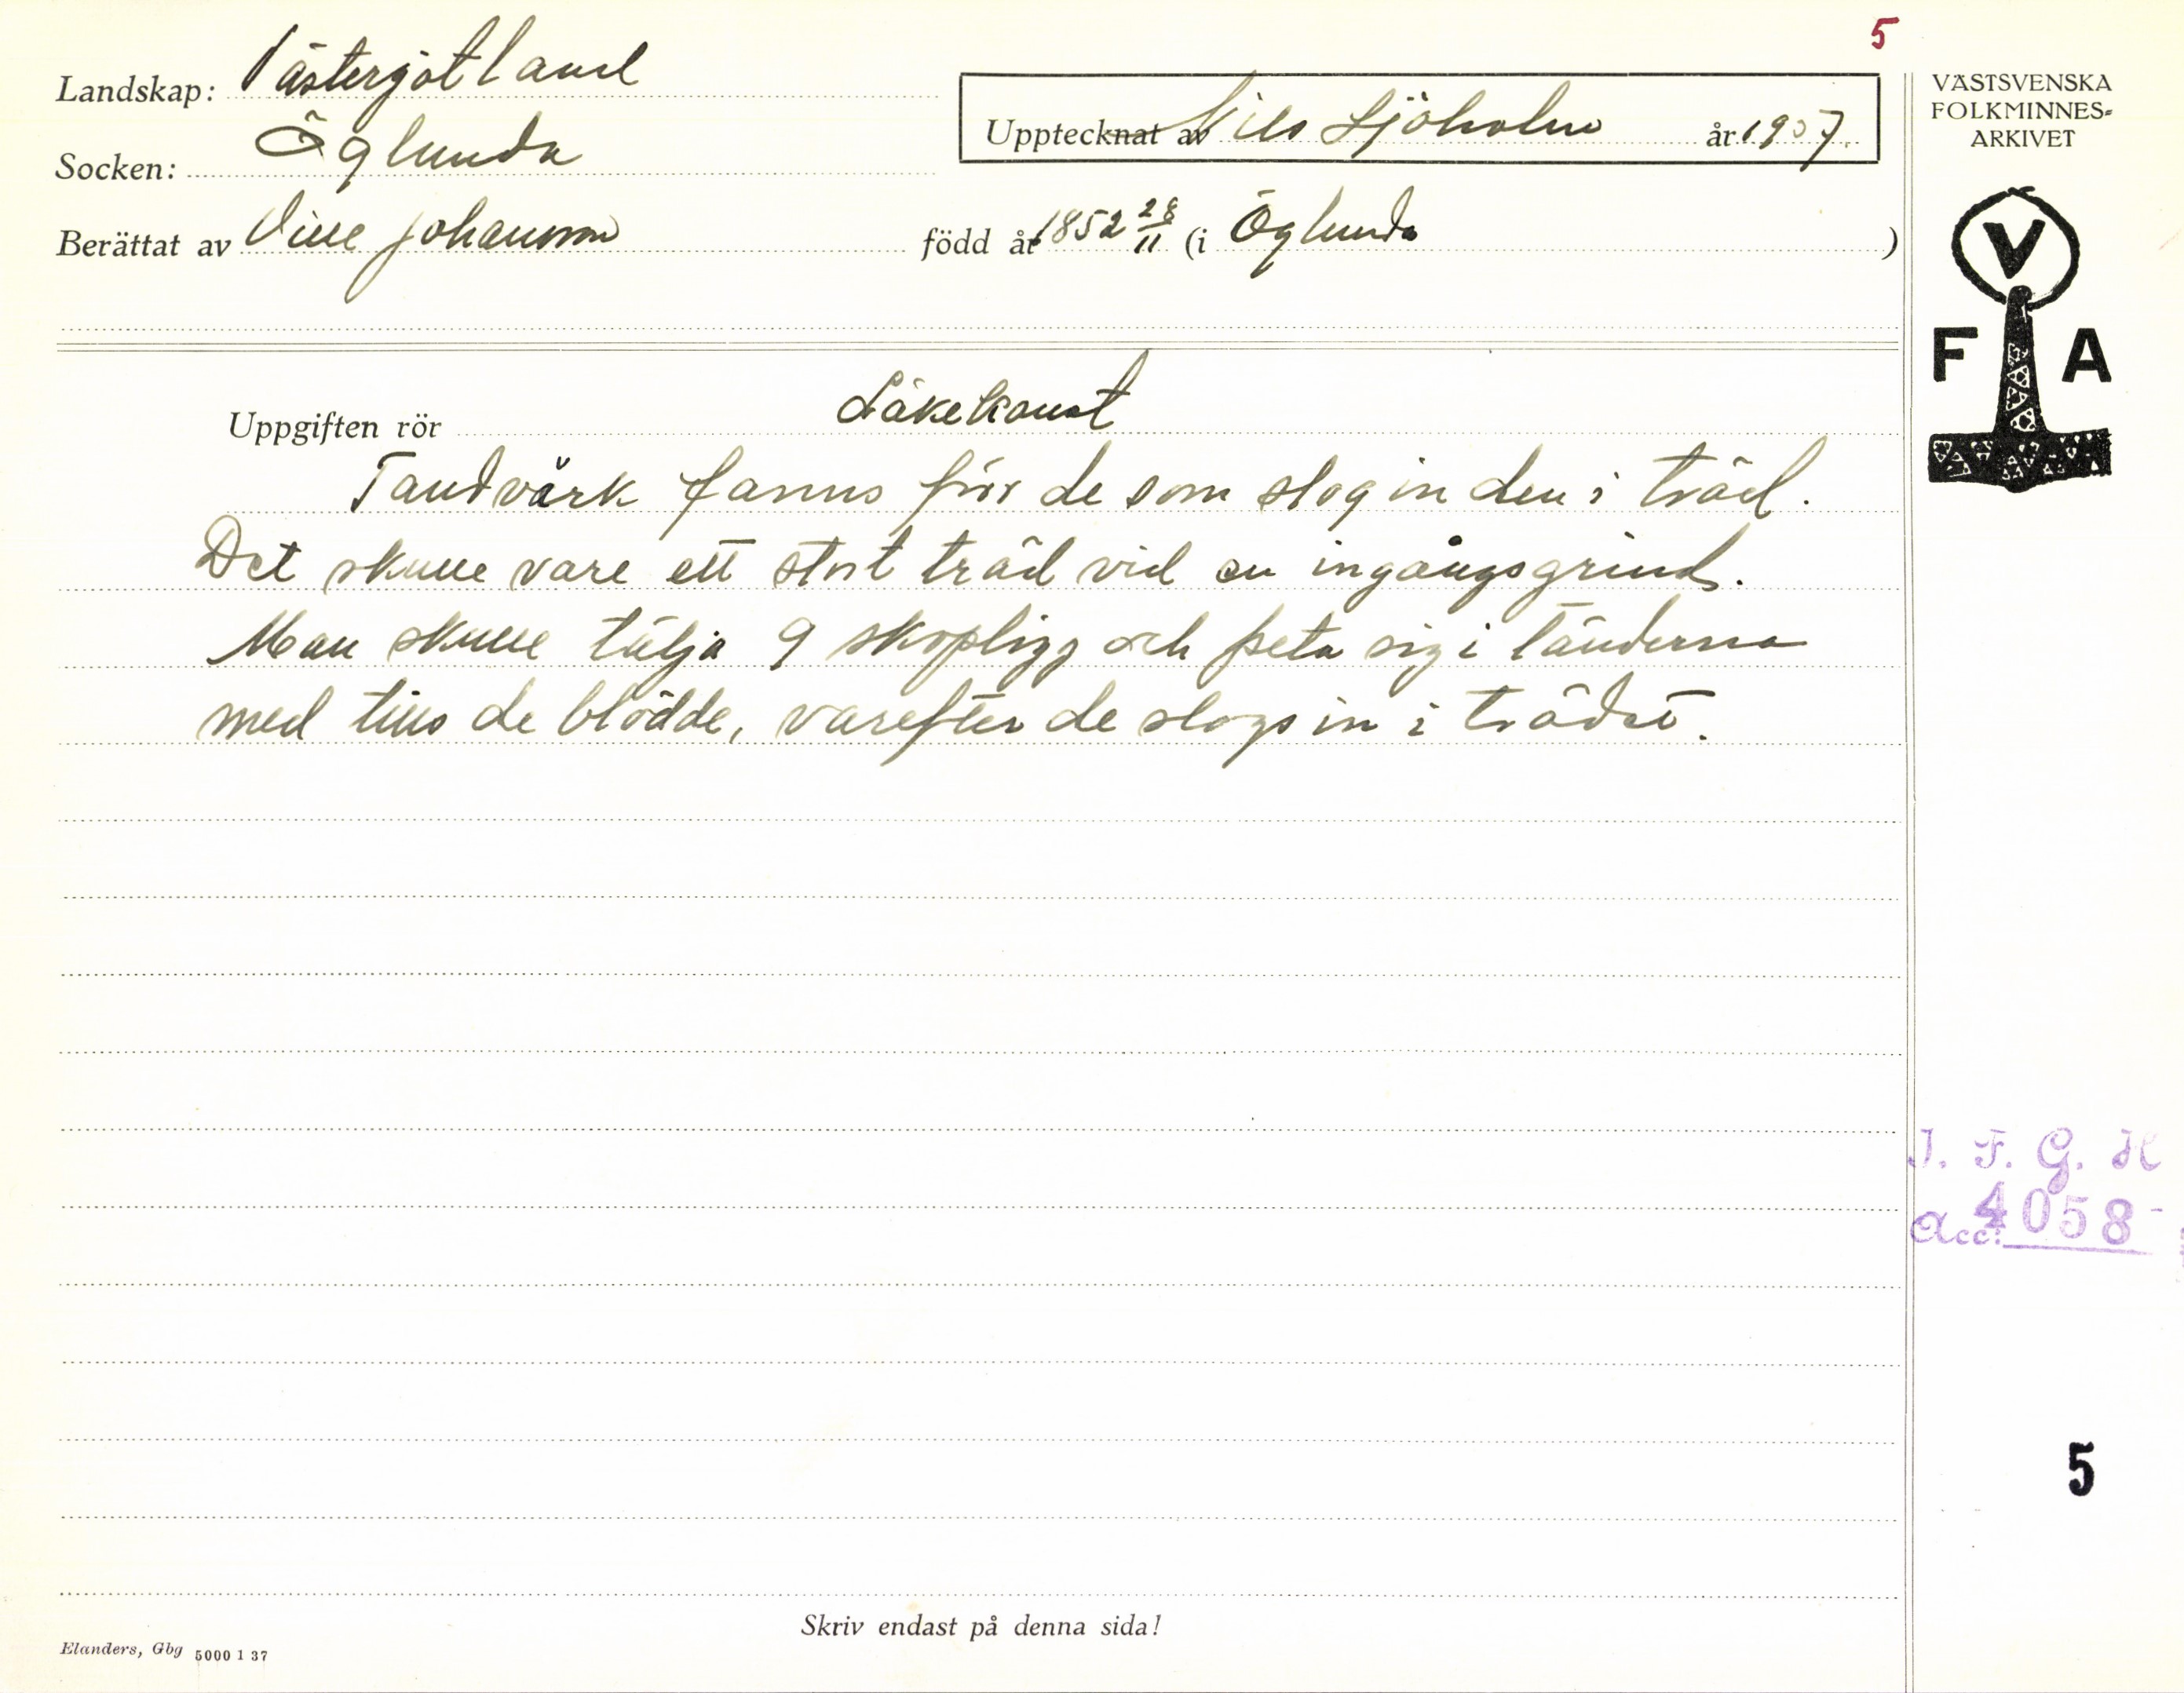 5
Landskap: Västergötland
Upptecknat av Nils Sjöholm år 1937.
VÄSTSVENSKA
FOLKMINNES-
ARKIVET
Socken: Öglunda
Berättat av Ville Johansson född år 1852 28/11 (i Öglunda )
V
F A
Uppgiften rör Läkekonst
Tandvärk fanns för de som slog in den i träd.
Det skulle vare ett stort träd vid en ingångsgrind.
Man skulle tälja 9 skopligg och peta sig i tänderna
med tills de blödde, varefter de slogs in i trädet.
I. F. G. H
Acc: 4058
5
Skriv endast på denna sida!
Elanders, Gbg 5000 1 37